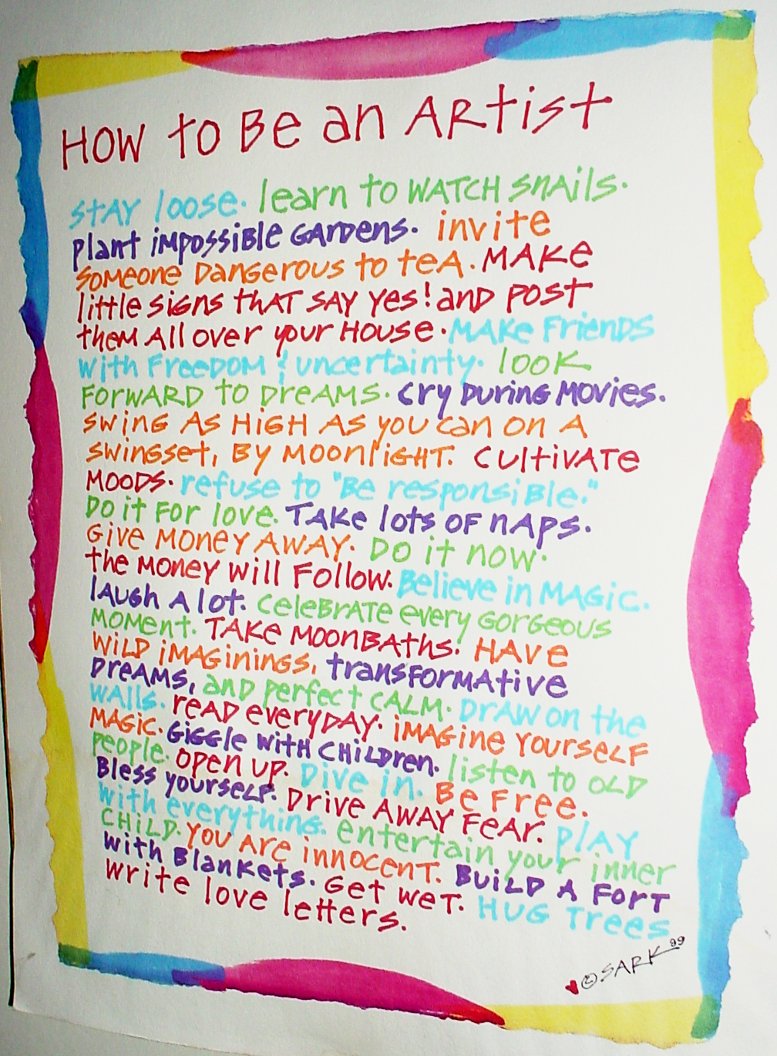 How to Be an Artist
Stay loose. learn to WATCH snails.
plant impossible gardens. invite
someone dangerous to tea. Make
little signs that say yes! and post
them all over your house. Make friends
with freedom & uncertainty. look
forward to dreams. Cry during movies.
Swing as high as you can on a
swingset, by moonlight. Cultivate
moods. refuse to "Be responsible."
Do it for love. Take lots of naps.
Give money away. Do it now.
the money will follow. Believe in magic.
laugh a lot. Celebrate every gorgeous
moment. Take moonbaths. Have
wild imaginings, transformative
dreams, and perfect calm. Draw on the
walls. read everyday. imagine yourself
magic. Giggle with children. listen to old
people. open up. Dive in. Be free.
Bless yourself. Drive away fear. play
with everything. entertain your inner
child. You are innocent. Build a fort
with blankets. Get wet. Hug trees
write love letters.
©SARK 99